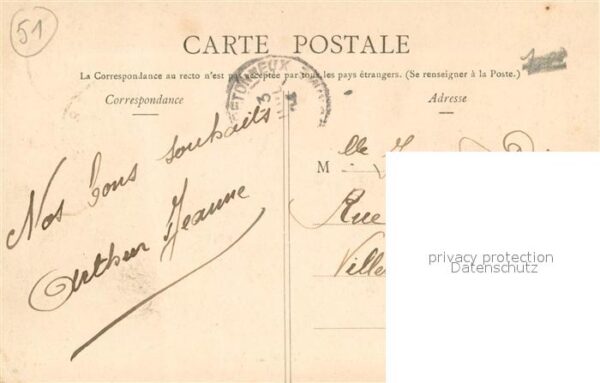 51
CARTE POSTALE
La Correspondance au recto n'est pas acceptée par tous les pays étrangers. (Se renseigner à la Poste.)
Correspondance
Adresse
Nos bons souhaits
Arthur Jeanne
M lle
Rue
Ville
privacy protection
Datenschutz